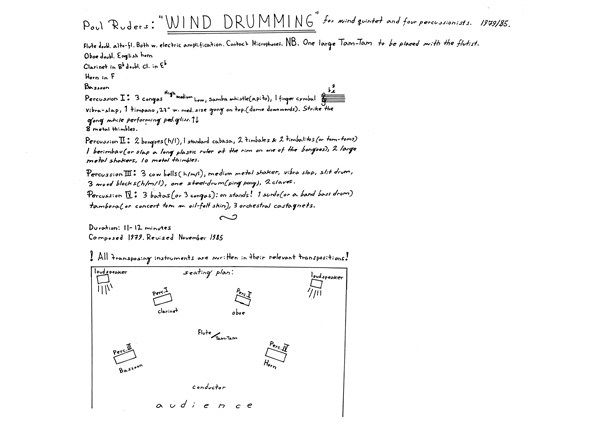 Poul Ruders: "WIND DRUMMING" for wind quintet and four percussionists. 1979/85.
Flute doubl. alto-fl. Both w. electric amplification. Contact Microphones. NB. One large Tam-Tam to be placed with the flutist.
Oboe doubl. English horn
Clarinet in Bb doubl. cl. in Eb
Horn in F
Bassoon
Percussion I: 3 congas high medium low, samba whistle(apito), 1 finger cymbal
vibra-slap, 1 timpano, 27" w. med. size gong on top.(dome downwards). Strike the
gong while performing ped. gliss. ↑↓
8 metal thimbles.
Percussion II: 2 bongoes(h/l), 1 standard cabasa, 2 timbales & 2 timbalitos(or tom-toms)
1 berimbau(or slap a long plastic ruler at the rim on one of the bongoes), 2 large
metal shakers, 10 metal thimbles.
Percussion III: 3 cow bells(h/m/l), medium metal shaker, vibra slap, slit drum,
3 wood blocks(h/m/l), one steel-drum(ping pong), 2 claves.
Percussion IV: 3 batas(or 3 congas): on stands! 1 surdo(or a band bass drum)
tambora(or concert tom w. oil-felt skin), 3 orchestral castagnets.
Duration: 11-12 minutes
Composed 1979. Revised November 1985
! All transposing instruments are written in their relevant transpositions!
loudspeaker seating plan: loudspeaker
Perc. I Perc. II
clarinet oboe
Flute
Tam-Tam
Perc. III Perc. IV
Bassoon Horn
conductor
audience